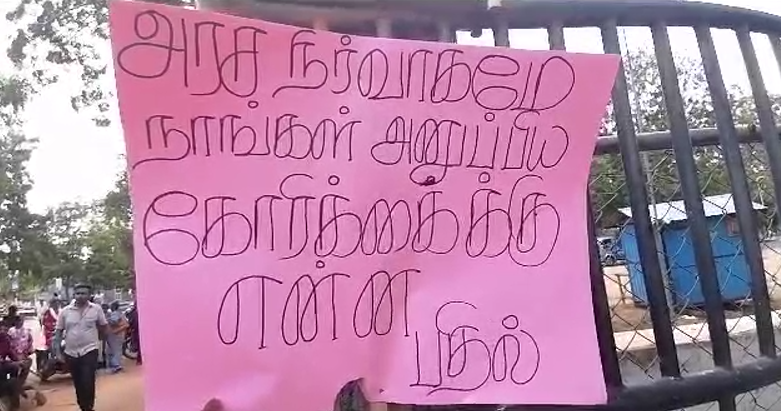 அரச நிர்வாகமே
நாங்கள் அனுப்பிய
கோரிக்கைக்கு
என்ன
பதில்